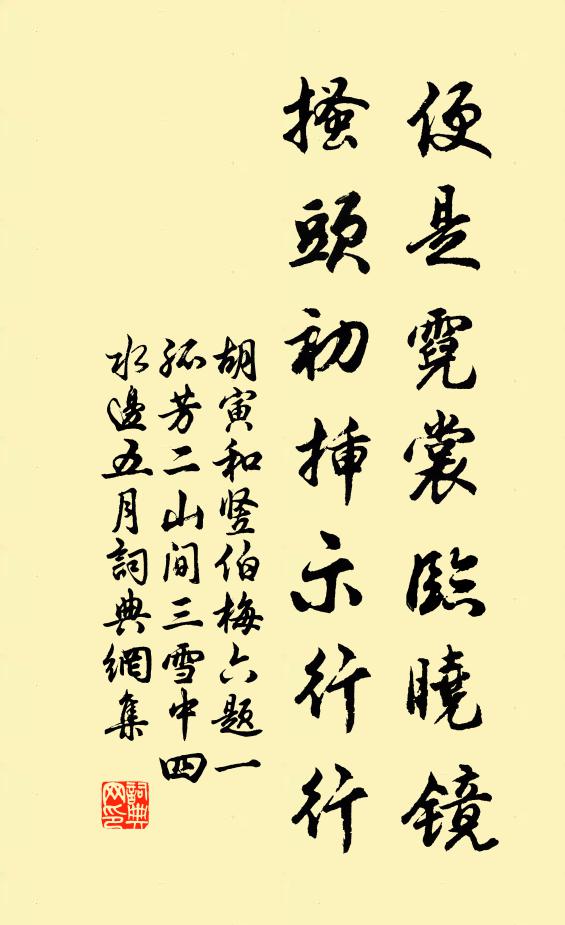 便是霓裳臨曉鏡
搔頭初插示行行
胡寅和竖伯梅六题一
孤芳二山间三雪中四
水邊五月詞典網集
詞典網印